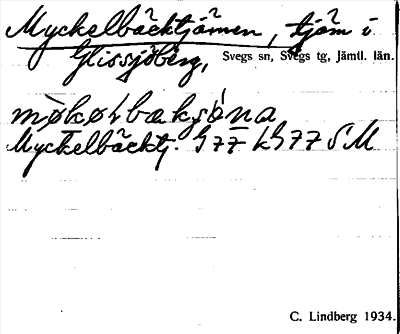 Myckelbäcktjärnen, tjärn i
Glissjöberg, Svegs sn, Svegs tg, Jämtl. län.
Myckelbäcktj. G 77 kG 77 S M
C. Lindberg 1934.